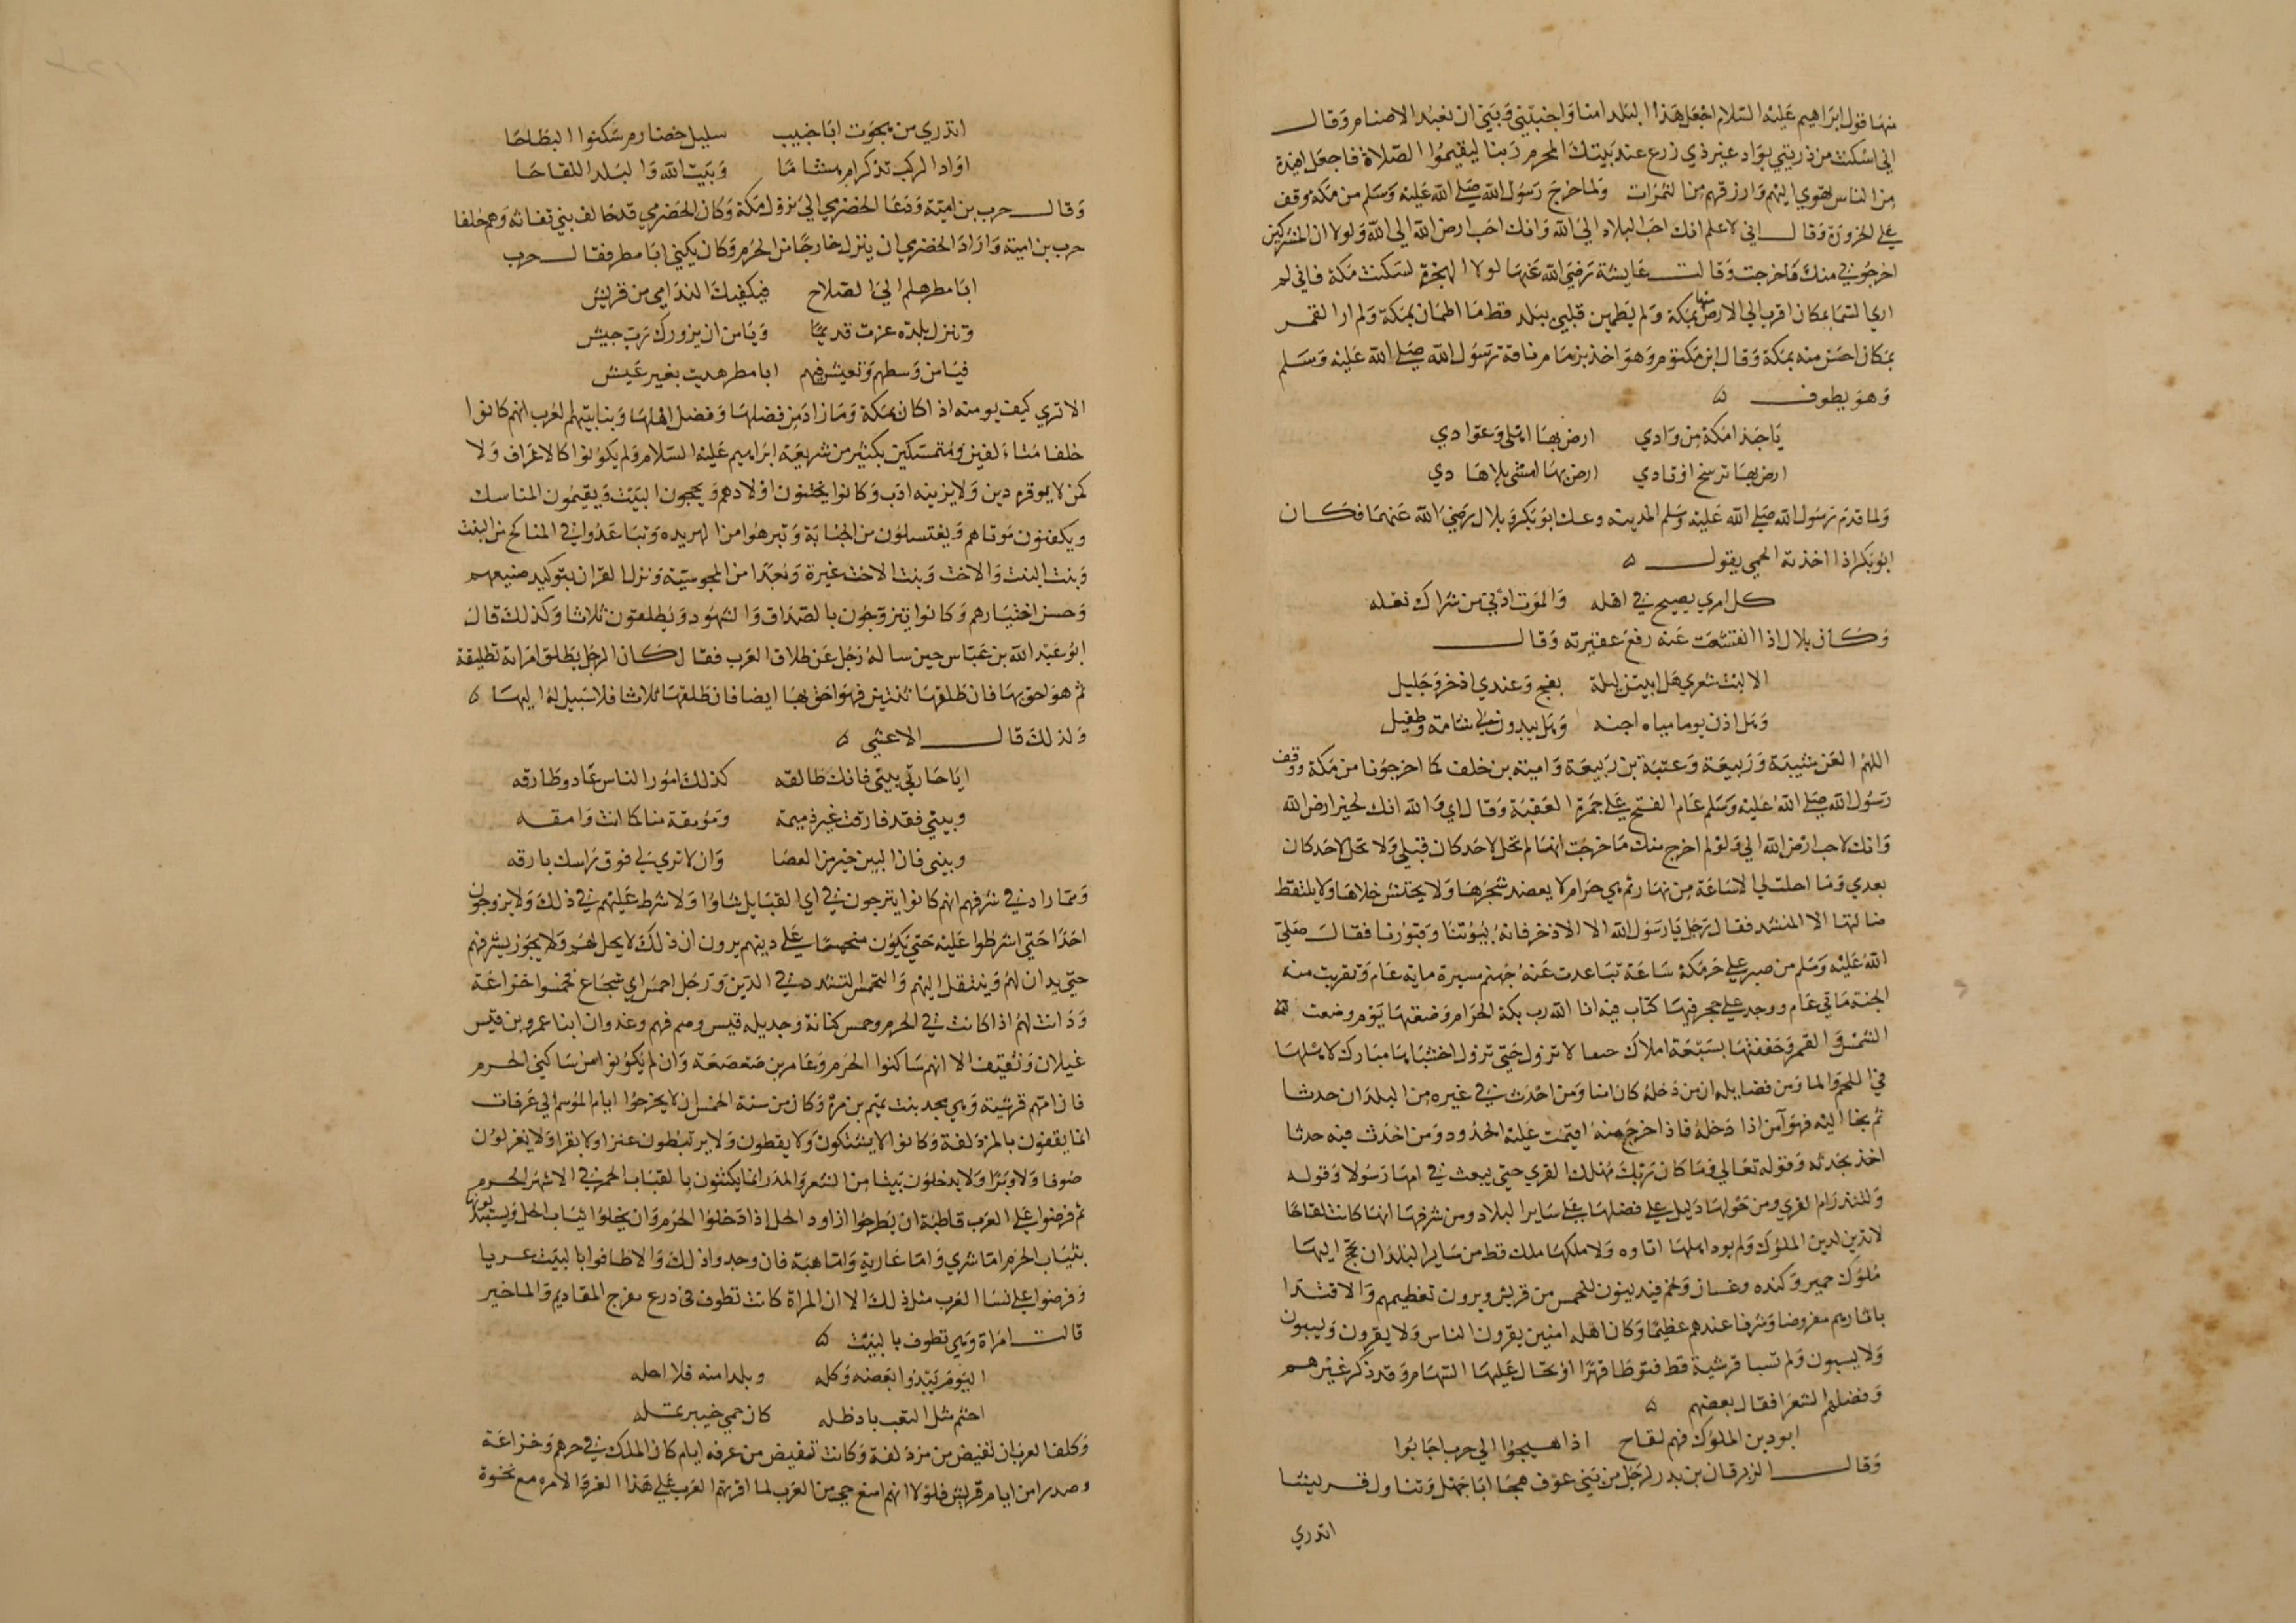 منها قول ابراهيم عليه السلام اجعل هذا البلد امنا واجنبني وبني ان نعبد الاصنام وقال
اني اسكنت من ذريتي بواد غير ذي زرع عند بيتك المحرم ربنا ليقيموا الصلاة فاجعل افئدة
من الناس تهوي اليهم وارزقهم من الثمرات ولما خرج رسول الله صلى الله عليه وسلم من مكة وقف
علي الحزورة وقال اني لاعلم انك احب البلاد الي الله وانك احب ارض الله الي الله ولولا ان المشركين
اخرجوني منك ما خرجت وقالت عايشة رضي الله عنها لولا الهجرة لسكنت مكة فاني لم
اري السما بمكان اقرب الي الارض منها بمكة ولم يطمين قلبي ببلد قط ما اطمان بمكة ولم ار القمر
بمكان احسن منه بمكة وقال ابن مكتوم وهو اخذ بزمام ناقة رسول الله صلى الله عليه وسلم
وهو يطوف ه
يا حبذا مكة من وادي ارض بها اهلي وعوادي
ارض بها ترسخ اوتادي ارض بها امشي بلا هادي
ولما قدم رسول الله صلى الله عليه وسلم المدينه وعك ابو بكر وبلال رضي الله عنهما فكان
ابو بكر اذا اخذته الحمي يقول ه
كل امري يصبح في اهله والموت ادني من شراك نعله
وكان بلال اذا انقشعت عنه رفع عقيرته وقال
الا ليت شعري هل ابيتن ليلة بفج وعندي اذخر وجليل
وهل اردن يوما مياه اجنه وهل يبدون لي شامة وطفيل
اللهم العن شيبة وربيعة وعتبة بن ربيعة وامية بن خلف كما اخرجونا من مكة ووقف
رسول الله صلى الله عليه وسلم عام الفتح علي جمرة العقبة وقال اي والله انك لخير ارض الله
وانك لاحب ارض الله الي ولو لم اخرج منك ما خرجت انها لم تحل لاحد كان قبلي ولا تحل لاحد كان
بعدي وما احلت لي الا ساعة من نهار ثم هي حرام لا يعضد شجرها ولا يحتش خلاها ولا يلتقط
ضالتها الا المنشد فقال رجل يا رسول الله الا الاذخر فانه لبيوتنا وقبورنا فقال صلي
الله عليه وسلم من صبر علي حر مكة ساعة تباعدت عنه جهنم مسيرة ماية عام وتقربت منه
الجنة مائتي عام ووجد علي حجر فيها كتاب فيه انا الله رب بكة الحرام وضعتها يوم وضعت
الشمس والقمر وحففتها بسبعة املاك حنفا لا تزول حتي تزول اخشباها مبارك لاهلها
في اللحم والما ومن فضايله ان من دخله كان امنا ومن احدث في غيره من البلدان حدثا
ثم لجا اليه فهو آمن اذا دخله فاذا خرج منه اقيمت عليه الحدود ومن احدث فيه حدثا
اخذ بحدثه وقوله تعالي وما كان ربك مهلك القري حتي يبعث في امها رسولا وقوله
ولتنذر ام القري ومن حولها دليل علي فضلها علي ساير البلاد ومن شرفها انها كانت لقاحا
لا تدين لدين الملوك ولم يود اهلها اتاوه ولا ملكها ملك قط من ساير البلدان تحج اليها
ملوك حمير وكنده وغسان ولخم فيدينون للحمس من قريش ويرون تعظيمهم والاقتدا
باثارهم مفروضا وشرفا عندهم عظيما وكان اهله امنين يقرون الناس ولا يقرون ويسبون
ولا يسبون ولم تسبا قرشية قط فتوطا قهرا او تحال عليها السهام وقد ذكر غيرهم
وفضلهم الشعرا فقال بعضهم ه
ابو دين الملوك فهم لقاح اذا هيجوا الي حرب اجابوا
وقال الزبرقان بن بدر لرجل من بني عوف هجا ابا جهل وتناول قريشا
اتدري
اتدري من هجوت ابا خبيب سليل خضارم سكنوا البطاحا
او اد الركب تذكر ام هشاما وبيت الله والبلد اللقاحا
وقال حرب بن امية ودعا الحضرمي الي نزول مكة وكان الحضرمي قد حالف بني نفاثه وهم حلفا
حرب بن امية واراد الحضرمي ان ينزل خارجا من الحرم وكان يكني ابا مطر فقال حرب
ابا مطر هلم الي الصلاح فيكفيك الندامي من قريش
وتنزل بلده عزت قديما ويامن ان يزورك رب جيش
فيامن وسطهم وتعيش فيهم ابا مطر هديت بغير عيش
الا تري كيف يومنه اذا كان بمكة وما زاد من فضلها وفضل اهلها ومباينتهم لعرب انهم كانوا
حلفا متالفين ومتمسكين بكثير من شريعة ابراهيم عليه السلام ولم يكونوا كالاعراف ولا
كمن لا يوقره دين ولا يزينه ادب وكانوا يختنون اولادهم ويحجون البيت ويقيمون المناسك
ويكفنون موتاهم ويغتسلون من الجنابة وتبرهوا من الهربده وتباعدوا في المناكح من البنت
وبنت البنت والاخت وبنت الاخت غيرة وبعدا من المجوسية ونزل القران بتوكيد صنيعهم
وحسن اختيارهم وكانوا يتزوجون بالصداق والشهود ويطلقون ثلاثا وكذلك قال
ابو عبد الله بن عباس حين ساله رجل عن طلاق العرب فقال كان الرجل يطلق امراته تطليقة
ثم هو احق بها فان طلقها ثنتين فهو احق بها ايضا فان طلقها ثلاثا فلا سبيل له اليها ه
ولذلك قال الاعشي ه
ايا جارتي بيني فانك طالقه كذلك امور الناس غاد وطارقه
وبيني فقد فارقت غير ذميمة وموموقة منا كما انت وامقه
وبيني فان البين خير من العصا وان لا تري لي فوق راسك بارقه
ومما زاد في شرفهم انهم كانوا يتزوجون في اي القبايل شاوا ولا شرط عليهم في ذلك ولا يزوجون
احدا حتي اشرطوا عليه حتي يكون متحمسا علي دينهم يرون ان ذلك لا يحل لهم ولا يجوز لشرفهم
حتي يدان لهم وينتقل اليهم والتحمس التشدد في الدين ورجل احمس اي شجاع فحمسوا خزاعة
ودانت لهم اذا كانت في الحرم وحمس كنانة وجديله قيس وهم فهم وعدوان ابنا عمرو بن قيس
عيلان وثقيف الا انهم ساكنوا الحرم وعامر بن صعصعة وان لم يكونوا من ساكني الحرم
فان امهم قرشية وهي مجد بنت تيم بن مرة وكان من سنة الحمس ان لا يخرجوا ايام الموسم الي عرفات
انما يقفون بالمزدلفة وكانوا لا ينتتكون ولا يقطون ولا يرتبطون عنزا ولا بقرا ولا يغزلون
صوفا ولا وبرا ولا يدخلون بيتا من الشعر والمدر انما يكتنون بالقباب الحمر في الاشهر الحرم
ثم فرضوا علي العرب قاطبة ان يطرحوا ازاود الحل اذا دخلوا الحرم وان يخلوا ثياب الحل ويستبدلونها
بثياب الحرم اما شري واما عارية واما هبة فان وجدوا ذلك والا طافوا بالبيت عريا
وفرضوا علي نسا العرب مثل ذلك الا ان المراة كانت تطوف في درع مفرج المقاديم والماخير
قالت امراة وهي تطوف بالبيت ه
اليوم يبدوا بعضه وكله وما بدا منه فلا احله
اختم مثل القعب باد ظله كان حمي خيبر تمله
وكلفوا لعرب ان تفيض من مزدلفة وكانت تفيض من عرفه ايام كان الملك في جرهم وخزاعة
وصدرا من ايام قريش فلولا انهم امنع حي من العرب لما اقرتهم العرب علي هذا العز والامره مع نخوة